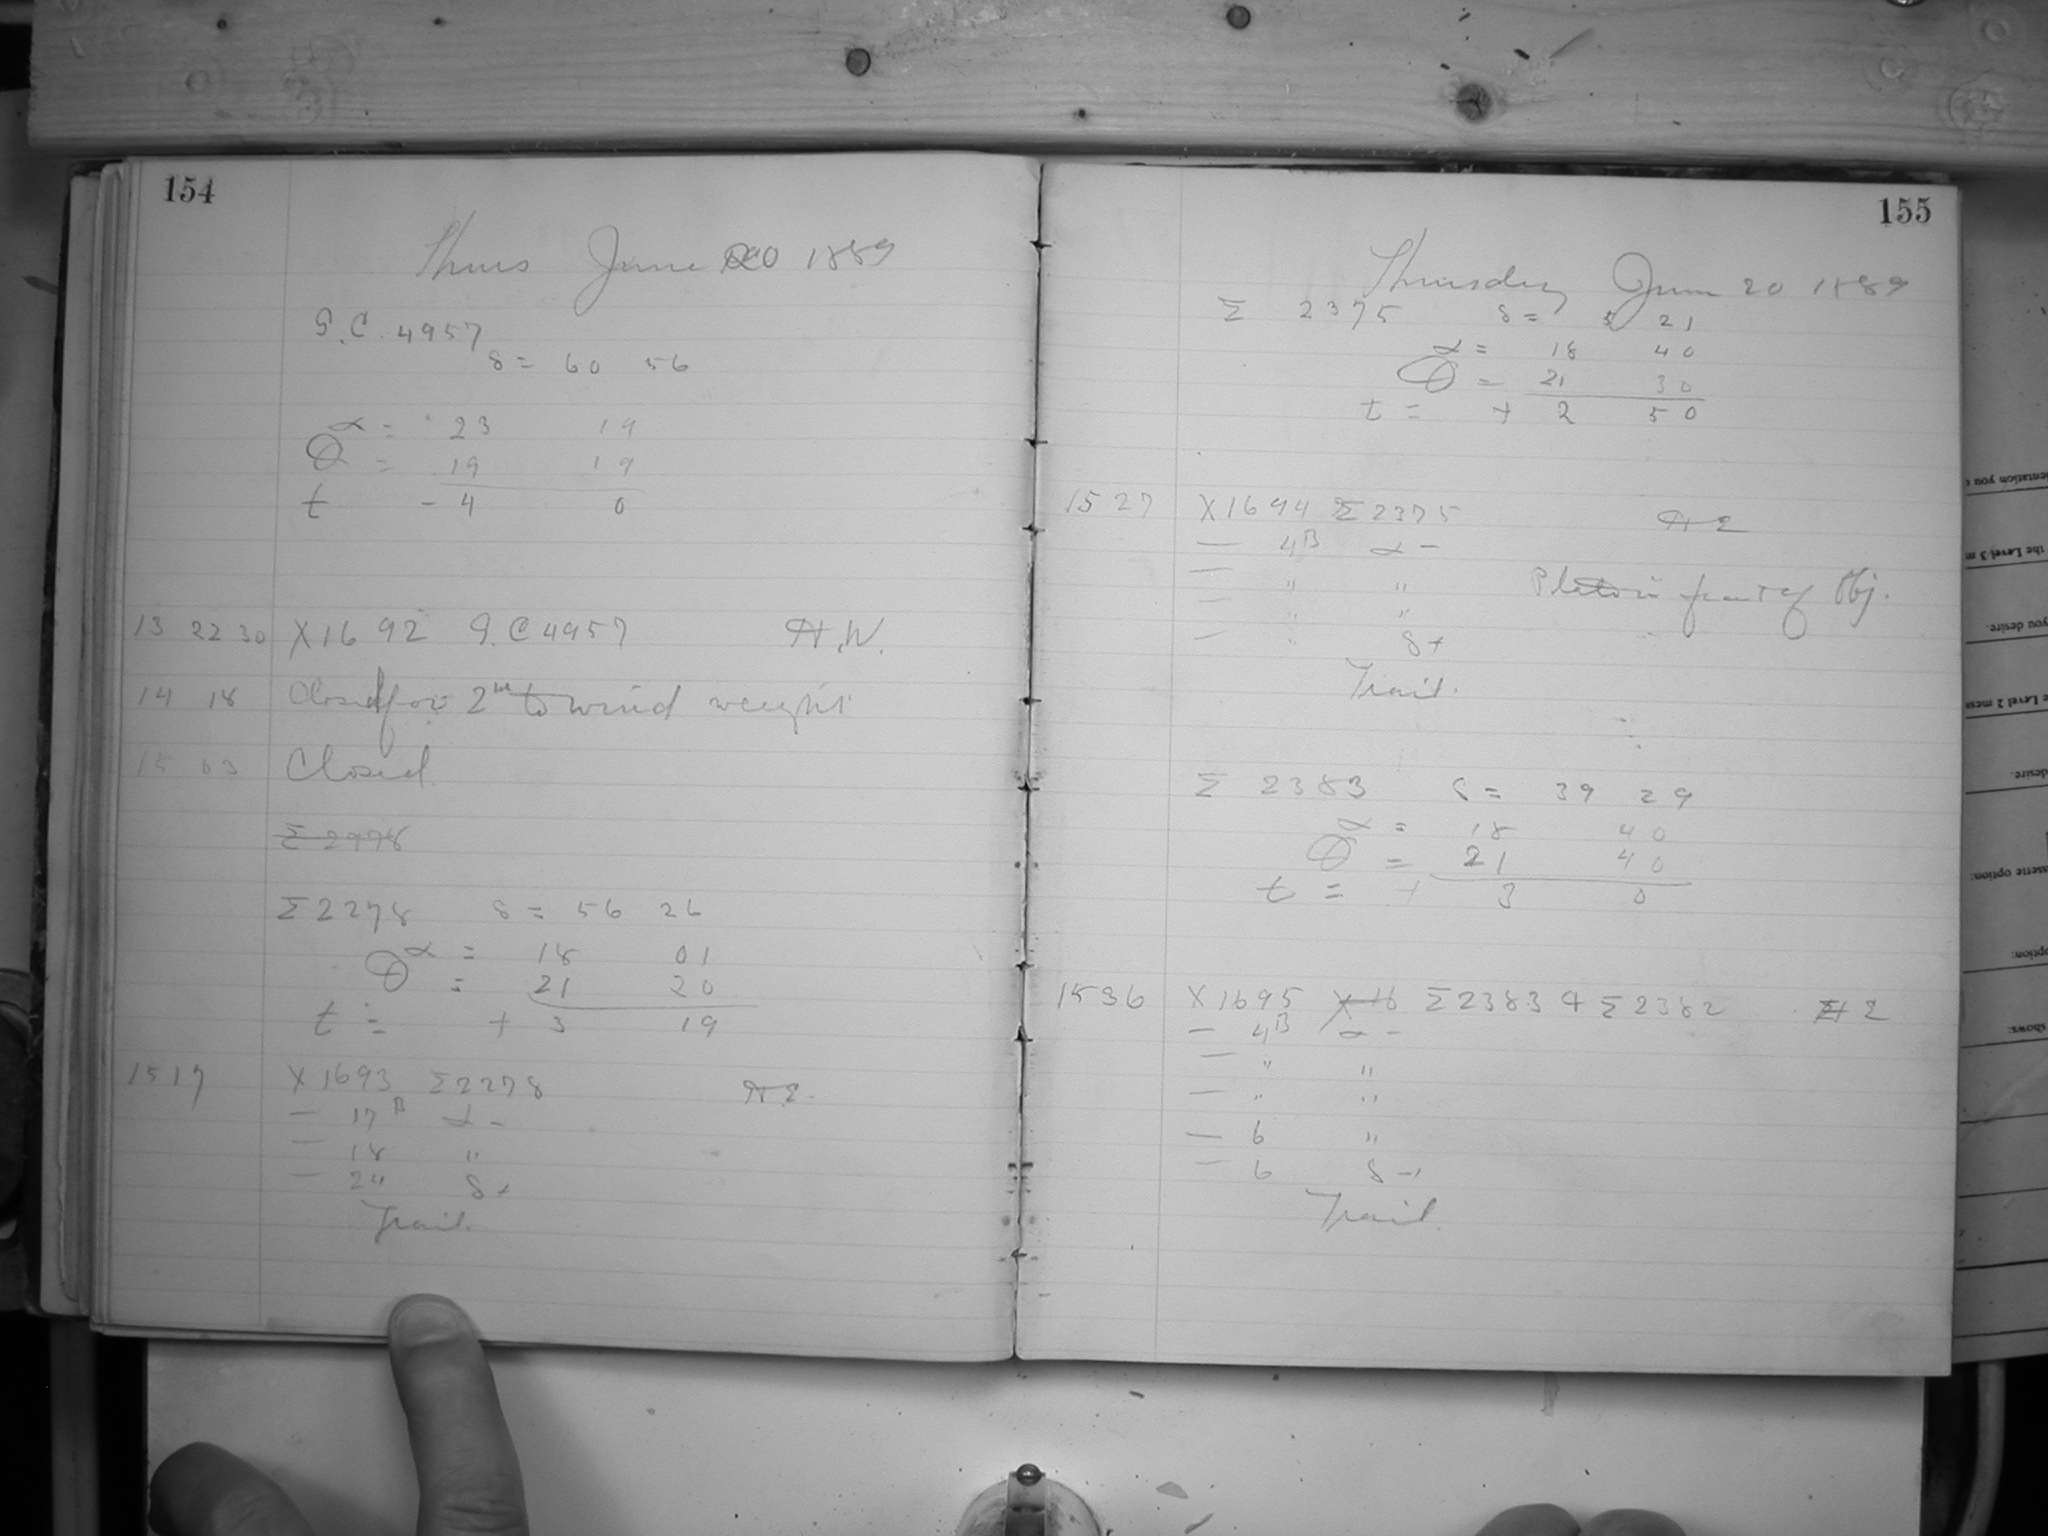 154
Thurs June 20 1889
G.C. 4957
δ = 60 56
α = 23 19
θ = 19 19
t - 4 0
13 22 30 X1692 G.C 4957 H.W.
14 18 Closed for 2m to wind weight
15 03 Closed
Σ 2978
Σ 2278 δ = 56 26
α = 18 01
θ = 21 20
t = + 3 19
15 17 X 1693 Σ 2278 H E.
— 17 B α -
— 18 "
— 24 δ +
Trail.
155
Thursday June 20 1889
Σ 2375 δ = 5 21
α = 18 40
θ = 21 30
t = + 2 50
15 27 X1694 Σ 2375 H E
— 4B α -
— " " Plate in front of Obj.
— " "
— " δ +
Trail.
Σ 2383 δ = 39 29
α = 18 40
θ = 21 40
t = + 3 0
15 36 X 1695 X 16 Σ 2383 & Σ 2382 H E
— 4B α -
— " "
— " "
— 6 "
— 6 δ -
Trail.
entation you
the Level 3 m
you desire.
e Level 2 mess
desire.
ssette option:
option:
shows: